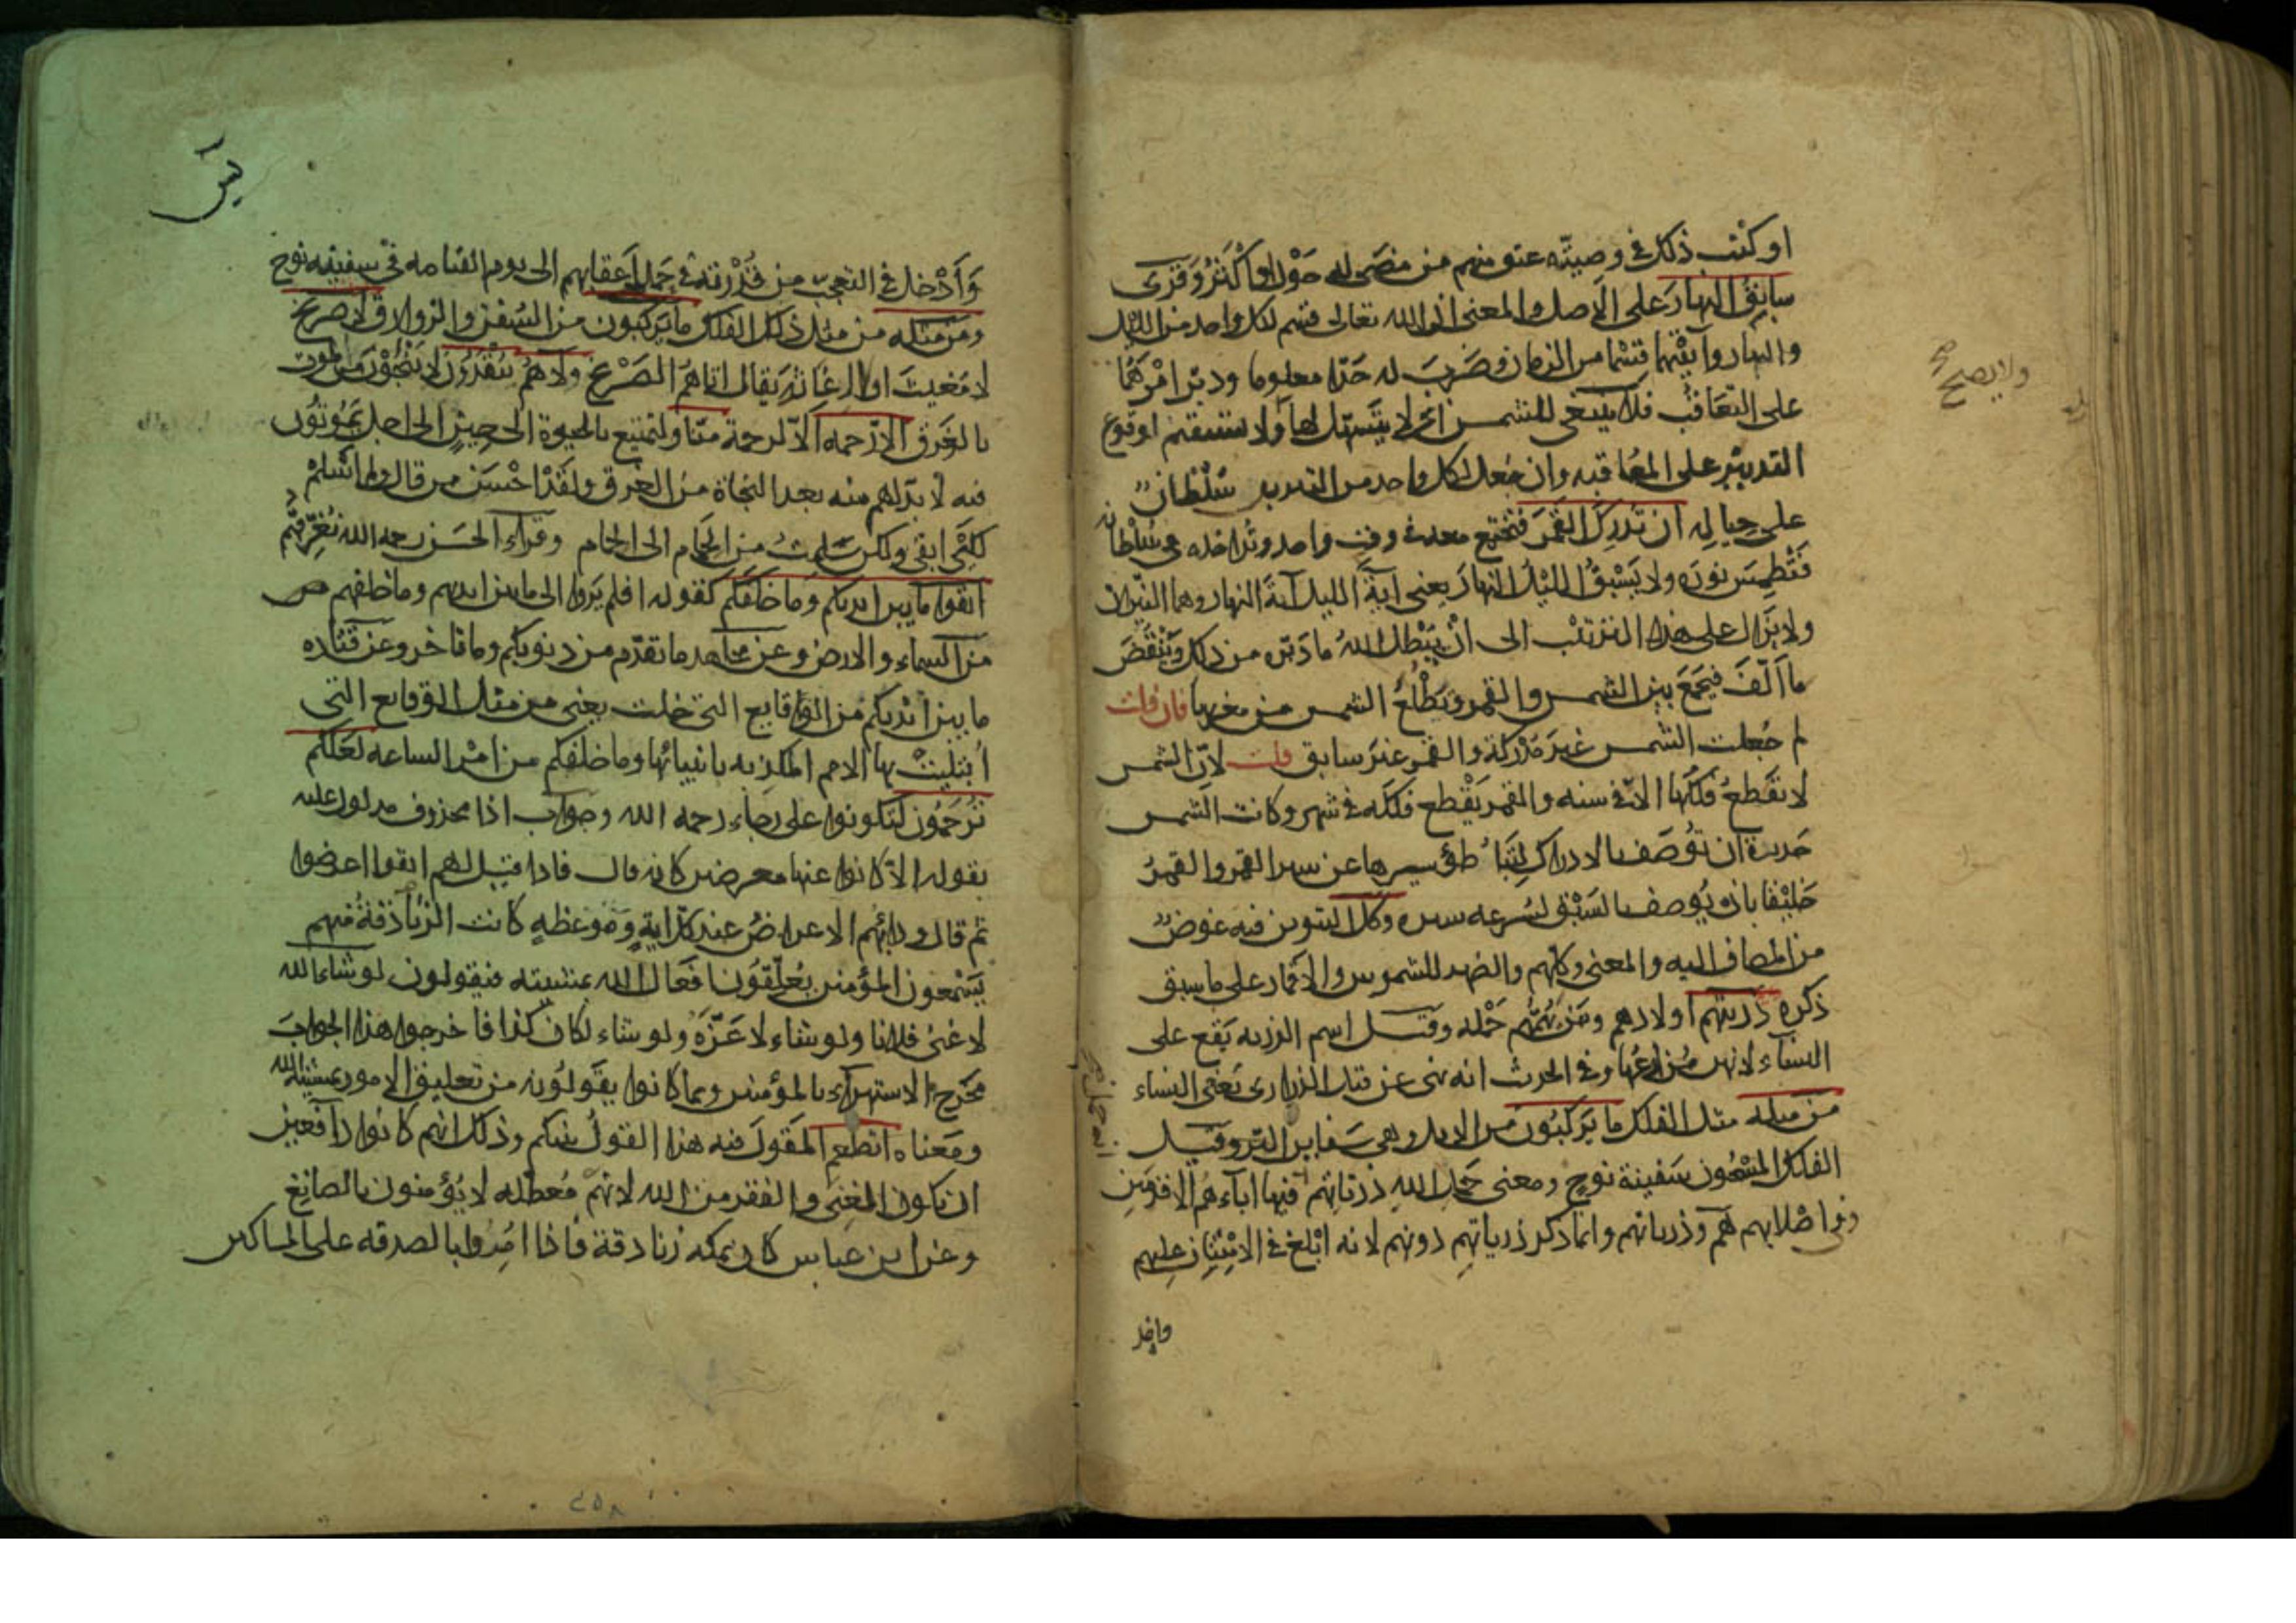 او كتب ذلك في وصيته عتق منهم من مضى له حول او اكثر وقرى
سابق النهار على الاصل والمعنى ان الله تعالى قسم لكل واحد من الليل
والنهار وآيتيهما قسما من الزمان وضرب له حدا معلوما ودبر امرهما
على التعاقب فلا ينبغي للشمس اى لا يتسهل لها ولا يستقيم لوقوع
التدبير على المعاقبه وان جعل لكل واحد من النيرين سلطان
على حياله ان تدرك القمر فتجتمع معه في وقت واحد وتداخله في سلطانه
فتطمس نوره ولا يسبق الليل النهار يعنى آية الليل آية النهار وهما النيران
ولا يزال على هذا الترتيب الى ان يبطل الله ما دبر من ذلك وينقض
ما الف فيجمع بين الشمس والقمر ويطلع الشمس من مغربها فان قلت
لم جعلت الشمس غير مدركة والقمر غير سابق قلت لان الشمس
لا تقطع فلكها الا في سنه والقمر يقطع فلكه في شهر وكانت الشمس
جديرة ان توصف بالادراك لتباطؤ سيرها عن سير القمر والقمر
خليقا بان يوصف بالسبق لسرعه سيره وكل التنوين فيه عوض
من المضاف اليه والمعنى وكلهم والضمير للشموس والاقمار على ما سبق
ذكره ذريتهم اولادهم ومن يهمهم حمله وقيل اسم الذريه يقع على
النساء لانهن مزارعها وفي الحديث انه نهى عن قتل الذراري يعني النساء
من مثله مثل الفلك ما يركبون من الابل وهي سفاين البر وقيل
الفلك المشحون سفينة نوح ومعنى حمل الله ذرياتهم فيها انه حمل اباءهم الاقدمين
وفي اصلابهم هم وذرياتهم وانما ذكر ذرياتهم دونهم لانه ابلغ في الامتنان عليهم
وادخل
ولا يصح
يس
وأدخل في التعجيب من قدرته في حمل اعقابهم الى يوم القيامه في سفينه نوح
ومن مثله من مثل ذلك الفلك ما يركبون من السفن والزوارق لا صريخ
لا مغيث او لا اغاثة يقال اتاهم الصريخ ولا هم ينقذون لا ينجون من الموت
بالغرق الا رحمه الا لرحمة منا ولتمتيع بالحيوة الى حين الى اجل يموتون
فيه لا بد لهم منه بعد النجاة من الغرق ولقد احسن من قال ولم اسلم
لكي ابقى ولكن سلمت من الحمام الى الحمام وقراء الحسن رحمه الله نغرقهم
اتقوا ما بين ايديكم وما خلفكم كقوله افلم يروا الى ما بين ايديهم وما خلفهم
من السماء والارض وعن مجاهد ما تقدم من ذنوبكم وما تاخر وعن قتاده
ما بين ايديكم من الوقايع التي خلت يعنى من مثل الوقايع التى
ابتليت بها الامم المكذبه بانبيائها وما خلفكم من امر الساعه لعلكم
ترحمون لتكونوا على رجاء رحمه الله وجواب اذا محذوف مدلول عليه
بقوله الا كانوا عنها معرضين كانه قال فاذا قيل لهم اتقوا اعرضوا
ثم قال ودابهم الاعراض عند كل اية وموعظه كانت الزنادقة منهم
يسمعون المؤمنين يعلقون افعال الله بمشيته فيقولون لو شاء الله
لاغنى فلانا ولو شاء لاعزه ولو شاء لكان كذا فاخرجوا هذا الجواب
مخرج الاستهزاء بالمؤمنين وبما كانوا يقولونه من تعليق الامور بمشية الله
ومعناه انطعم المقول فيه هذا القول بينكم وذلك انهم كانوا دافعين
ان يكون الغنى والفقر من الله لانهم معطله لا يؤمنون بالصانع
وعن ابن عباس كان بمكه زنادقة فاذا امروا بالصدقه على المساكين